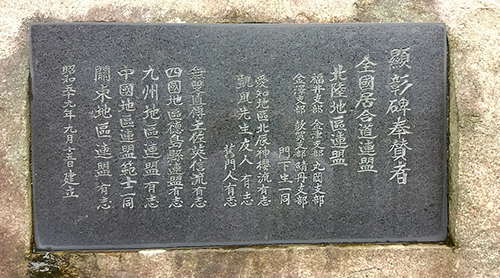 顯彰碑奉賛者
全國居合道連盟
北陸地區連盟
福井支部 今立支部 丸岡支部
金澤支部 敦賀支部 鯖丹支部
門下生一同
愛知地區北辰神櫻流有志
凱風先生友人有志
舊門人有志
無雙直傳土佐英信流有志
四國地區徳島縣連盟有志
九州地區連盟有志
中國地區連盟範士一同
關東地區連盟有志
昭和五十九年九月十五日建立